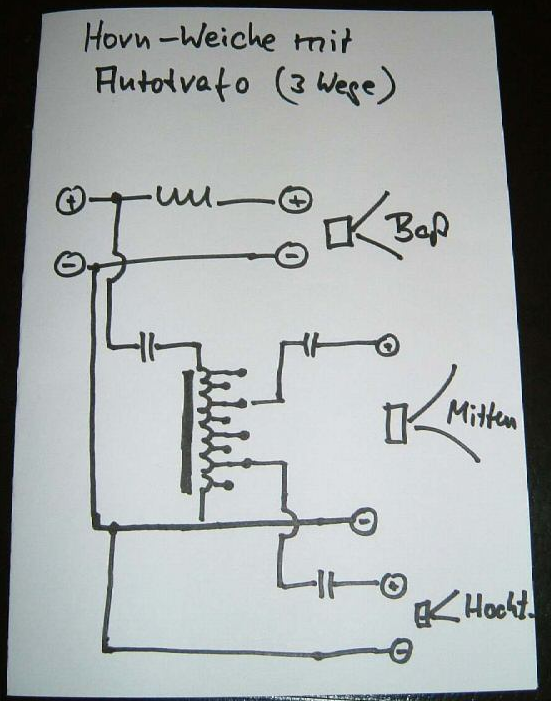 Horn-Weiche mit
Autotrafo (3 Wege)
+
+
-
-
Baß
+
Mitten
-
+
Hocht.
-